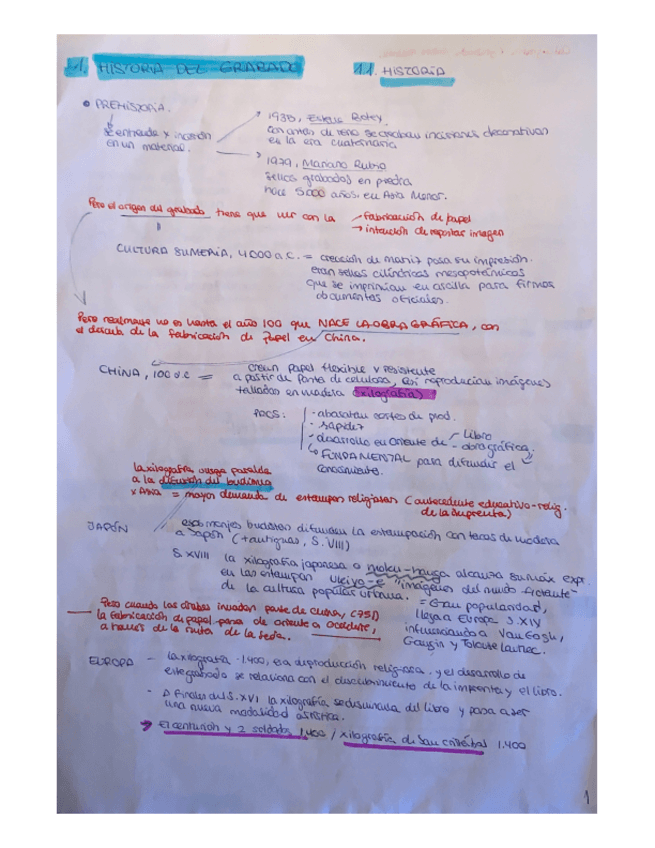 1. HISTORIA DEL GRABADO 1.1. HISTORIA
• PREHISTORIA.
Se entiende x incisión
en un material.
1935, Esteve Botey.
con astas de reno se grababan incisiones decorativas
en la era cuaternaria
1979, Mariano Rubio
sellos grabados en piedra
hace 5000 años. en Asia Menor.
Pero el origen del grabado tiene que ver con la
→ fabricación de papel
→ intención de repetir imagen
CULTURA SUMERIA, 4000 a.C. = creación de matriz para su impresión.
eran sellos cilíndricos mesopotámicos
que se imprimían en arcilla para firmar
documentos oficiales.
Pero realmente no es hasta el año 100 que NACE LA OBRA GRÁFICA, con
el descub. de la fabricación de papel en China.
CHINA, 100 d.C =
crean papel flexible y resistente
a partir de pasta de celulosa, así reproducían imágenes
talladas en madera (xilografía)
PROS:
- abaratan costes de prod.
- rapidez
- desarrollo en Oriente de - libro
- obra gráfica.
FUNDAMENTAL para difundir el
conocimiento.
la xilografía surge paralela
a la difusión del budismo
x Asia = mayor demanda de estampas religiosas (antecedente educativo-relig.
de la imprenta)
JAPÓN
esos monjes budistas difunden la estampación con tacos de madera
a Japón (+antiguas, S. VIII)
S. XVIII la xilografía japonesa o moku-hanga alcanza su máx expr.
en las estampas Ukiyo-e "imágenes del mundo flotante"
de la cultura popular urbana.
= Gran popularidad,
llega a Europa S. XIX
influenciando a Van Gogh,
Gaugin y Toulouse Lautrec.
Pero cuando los árabes invaden parte de China, (751)
la fabricación de papel pasa de oriente a occidente,
a través de la ruta de la seda.
EUROPA - la xilografía · 1.400, era reproducción religiosa. y el desarrollo de
este grabado se relaciona con el descubrimiento de la imprenta y el libro.
- A finales del S. XVI la xilografía se desvincula del libro y pasa a ser
una nueva modalidad artística.
→ El centurión y 2 soldados 1.400 / xilografía de San Cristóbal 1.400
1